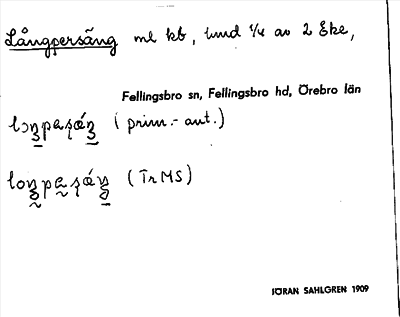 Långpersäng ml kb, lund ¼ av 2 Eke,
Fellingsbro sn, Fellingsbro hd, Örebro län
(prim.-ant.)
(TrMS)
JÖRAN SAHLGREN 1909